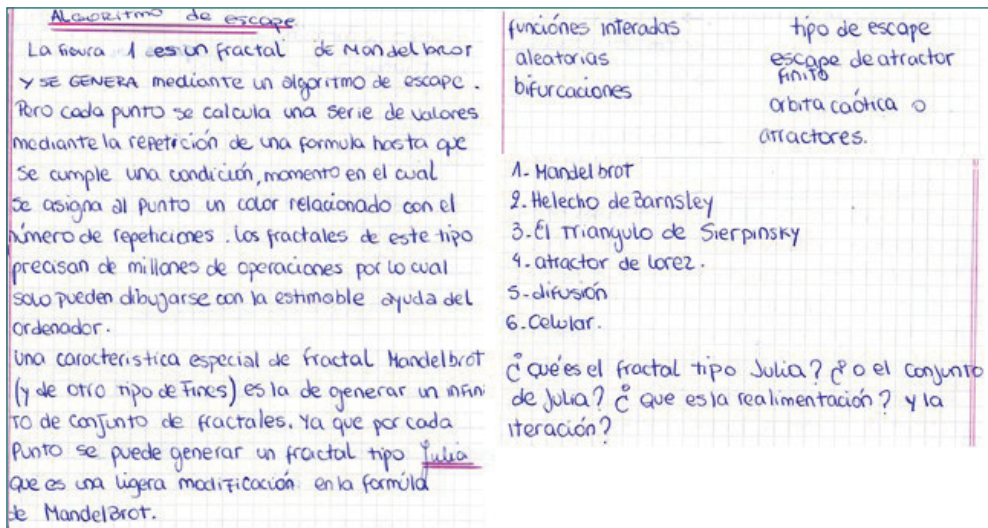 Algoritmo de escape
La figura 1 es un fractal de Mandelbrot
Y SE GENERA mediante un algoritmo de escape.
Pero cada punto se calcula una serie de valores
mediante la repetición de una formula hasta que
se cumple una condición, momento en el cual
se asigna al punto un color relacionado con el
número de repeticiones. los fractales de este tipo
precisan de millones de operaciones por lo cual
solo pueden dibujarse con la estimable ayuda del
ordenador.
Una caracteristica especial de fractal Mandelbrot
(y de otro tipo de Fines) es la de generar un infini
to de conjunto de fractales. Ya que por cada
Punto se puede generar un fractal tipo Julia
que es una ligera modificación en la formúla
de MandelBrot.
funciónes interadas
aleatorias
bifurcaciones
tipo de escape
escape de atractor
finito
orbita caótica o
atractores.
1- Mandelbrot
2. Helecho de Barnsley
3- El Triangulo de Sierpinsky
4- atractor de lorez.
5- difusión
6. Celular.
¿Qué es el fractal tipo Julia? ¿o el conjunto
de Julia? ¿Que es la realimentación? y la
iteración?